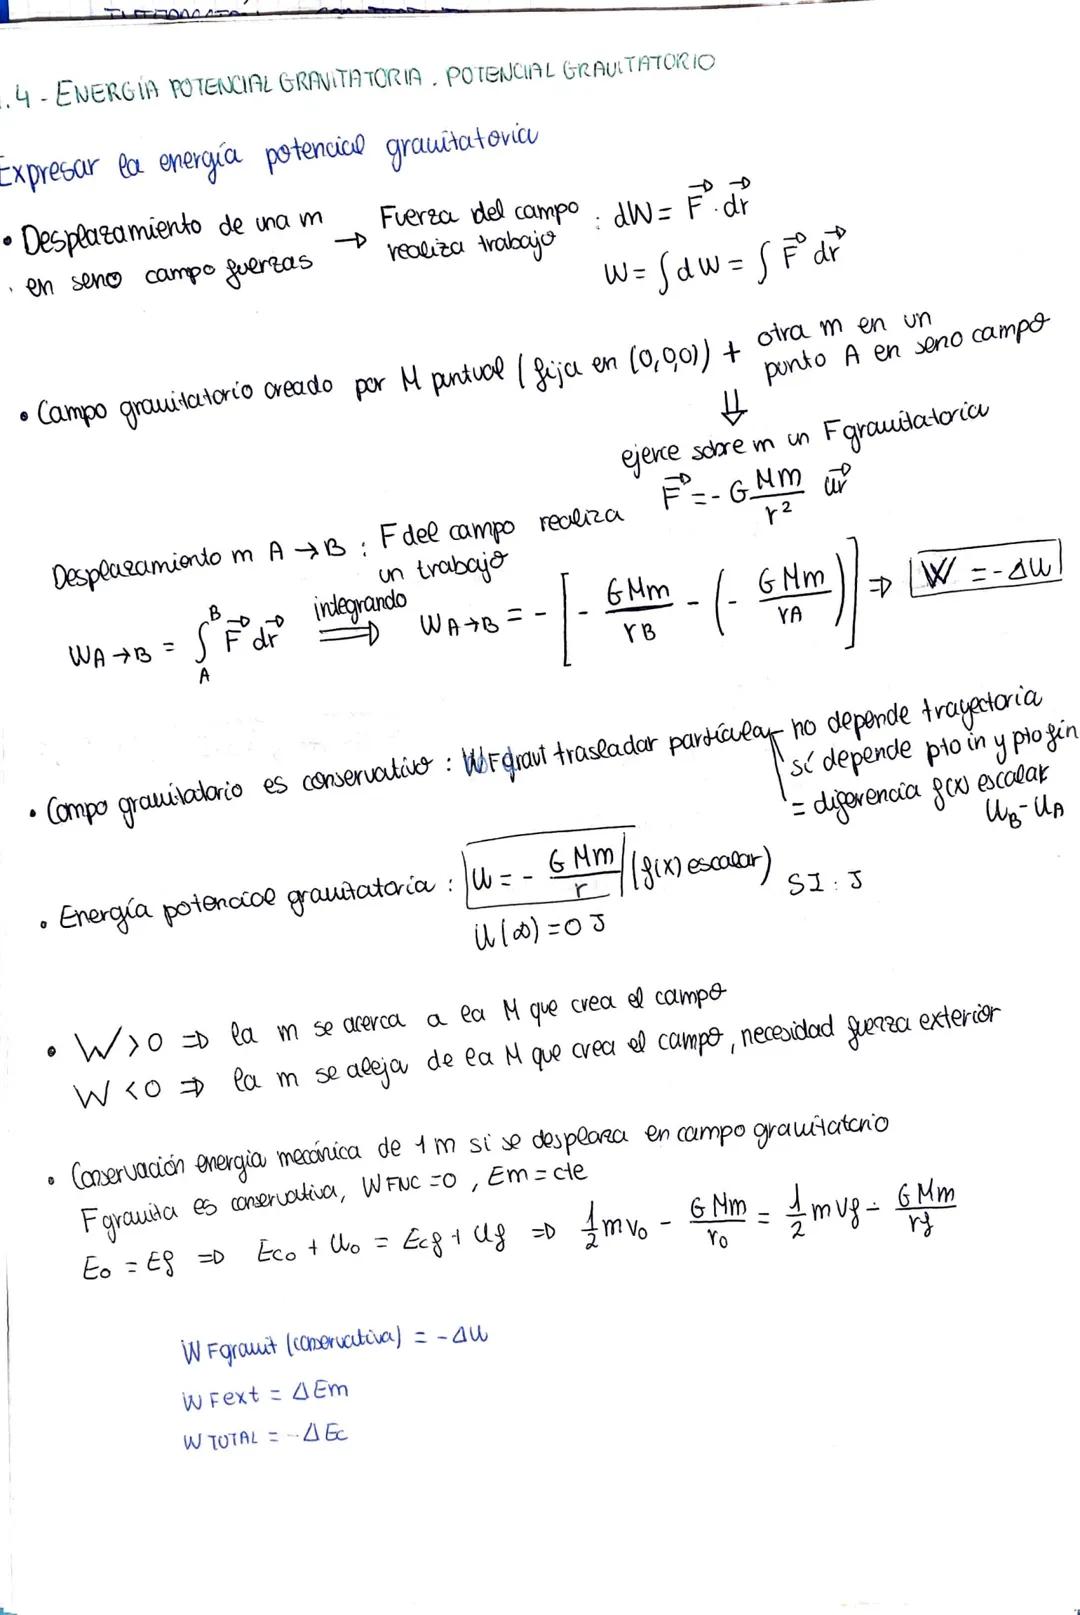 .4 - ENERGÍA POTENCIAL GRAVITATORIA. POTENCIAL GRAVITATORIO
Expresar la energía potencial gravitatoria
• Desplazamiento de una m en seno campo fuerzas → Fuerza del campo realiza trabajo : dW = F⃗ · dr⃗
W = ∫dW = ∫F⃗ dr⃗
• Campo gravitatorio creado por M puntual (fija en (0,0,0)) + otra m en un punto A en seno campo
⇓
ejerce sobre m un F gravitatoria
F⃗ = - G Mm / r² ur⃗
Desplazamiento m A → B : F del campo realiza un trabajo
WA→B = ∫_A^B F⃗ dr⃗ integrando ⟹ WA→B = - [ - GMm / rB - ( - GMm / rA ) ] ⇒ W = -ΔU
• Campo gravitatorio es conservativo : WFgravit trasladar partícula no depende trayectoria
sí depende pto in y pto fin
= diferencia f(x) escalar
UB - UA
• Energía potencial gravitatoria : U = - GMm / r (f(x) escalar) SI : J
U(∞) = 0 J
• W > 0 ⇒ la m se acerca a la M que crea el campo
W < 0 ⇒ la m se aleja de la M que crea el campo, necesidad fuerza exterior
• Conservación energía mecánica de 1 m si se desplaza en campo gravitatorio
F gravita es conservativa, WFNC = 0, Em = cte
Eo = Ef ⇒ Eco + Uo = Ecf + Uf ⇒ 1/2 m vo - GMm / ro = 1/2 m vf - GMm / rf
W Fgravit (conservativa) = -ΔU
W Fext = ΔEm
W TOTAL = -ΔEc